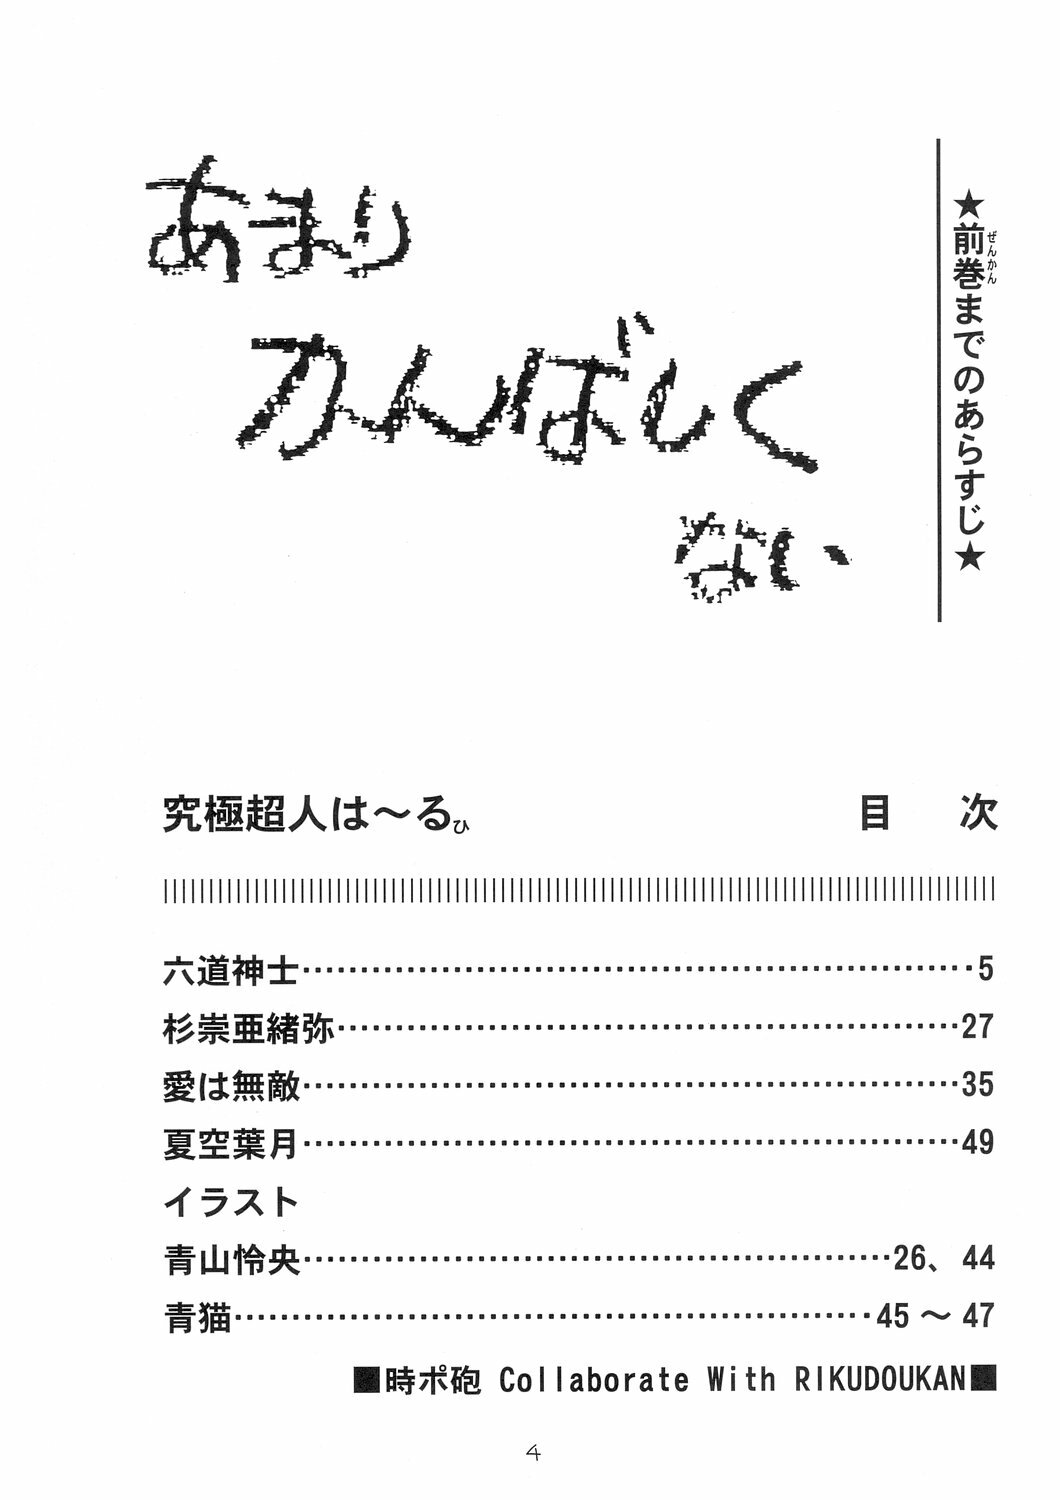 ★前巻までのあらすじ★
ぜんかん
あまり
かんばしく
ない
究極超人は～るひ
目 次
六道神士……5
杉崇亜緒弥……27
愛は無敵……35
夏空葉月……49
イラスト
青山怜央……26、44
青猫……45～47
■時ポ砲 Collaborate With RIKUDOUKAN■
4